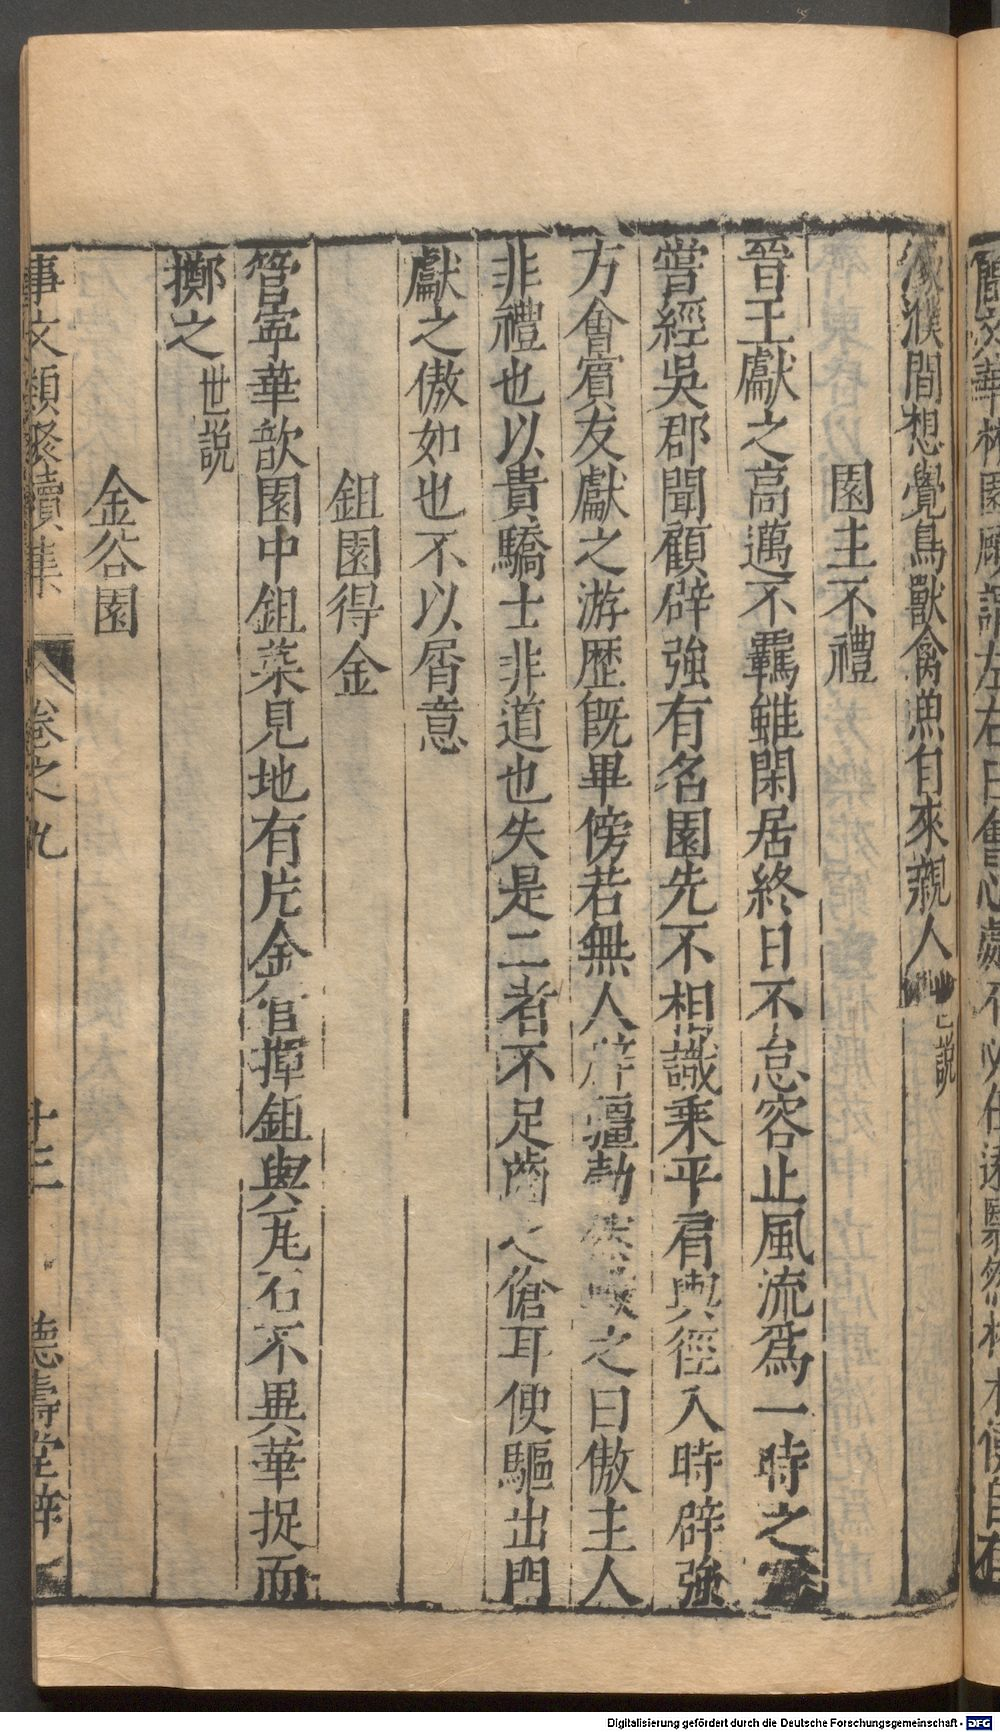 簡文華林園顧謂左右曰會心處不必在遠翳然林木便自有
濠濮間想覺鳥獸禽漁自來親人 世説
園主不禮
晉王獻之高邁不羈雖閑居終日不怠容止風流爲一時之
嘗經吳郡聞顧辟強有名園先不相識乘平肩輿徑入時辟強
方會賓友獻之游歷旣畢傍若無人辟疆勃然數之曰傲主人
非禮也以貴驕士非道也失是二者不足齒之傖耳便驅出門
獻之傲如也不以屑意
鉏園得金
管寧華歆園中鉏菜見地有片金管揮鉏與瓦石不異華捉而
擲之 世説
金谷園
事文類聚續集 卷之九 十三 德壽堂梓
Digitalisierung gefördert durch die Deutsche Forschungsgemeinschaft - DFG